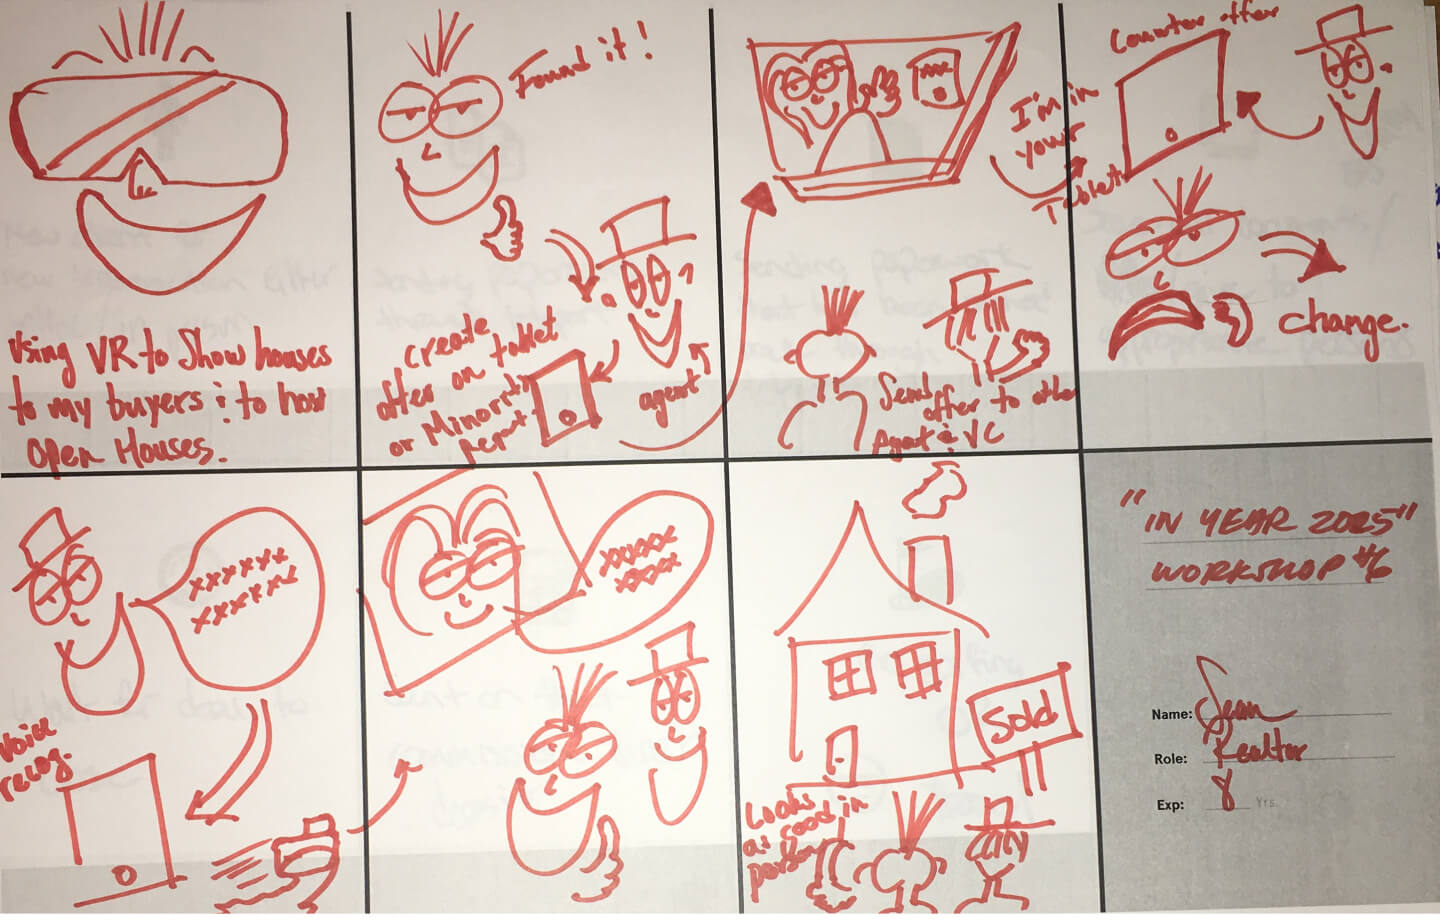 Using VR to Show houses
to my buyers & to host
Open Houses.
Found it!
create
offer on tablet
or Minority
Report
agent
I'm in
your
Tablet
Send
offer to other
Agent & VC
Counter offer
change.
Voice
recog.
xxxxxx
xxxxxx
xxxxx
xxxx
Sold
Looks
as good in
person
"IN YEAR 2025"
WORKSHOP #6
Name: Sean
Role: Realtor
Exp: 8 Yrs.